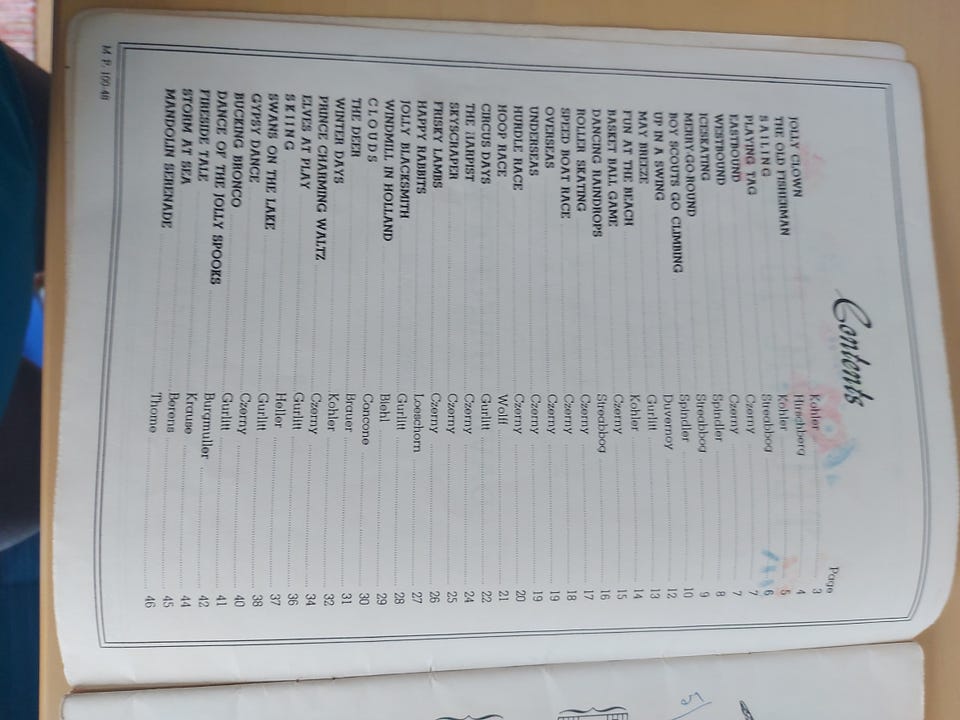 Contents
Page
JOLLY CLOWN Kohler 3
THE OLD FISHERMAN Hirschberg 4
SAILING Kohler 5
PLAYING TAG Streabbog 6
EASTBOUND Czerny 7
WESTBOUND Czerny 7
ICESKATING Spindler 8
MERRY-GO-ROUND Streabbog 9
BOY SCOUTS GO CLIMBING Spindler 10
UP IN A SWING Duvernoy 12
MAY BREEZE Gurlitt 13
FUN AT THE BEACH Kohler 14
BASKET BALL GAME Czerny 15
DANCING RAINDROPS Streabbog 16
ROLLER SKATING Czerny 17
SPEED BOAT RACE Czerny 18
OVERSEAS Czerny 19
UNDERSEAS Czerny 19
HURDLE RACE Czerny 20
HOOP RACE Wolff 21
CIRCUS DAYS Gurlitt 22
THE HARPIST Czerny 24
SKYSCRAPER Czerny 25
FRISKY LAMBS Czerny 26
HAPPY RABBITS Loeschorn 27
JOLLY BLACKSMITH Gurlitt 28
WINDMILL IN HOLLAND Biehl 29
CLOUDS Concone 30
THE DEER Brauer 31
WINTER DAYS Kohler 32
PRINCE CHARMING WALTZ Czerny 34
ELVES AT PLAY Gurlitt 36
SKIING Heller 37
SWANS ON THE LAKE Gurlitt 38
GYPSY DANCE Czerny 40
BUCKING BRONCO Gurlitt 41
DANCE OF THE JOLLY SPOOKS Burgmuller 42
FIRESIDE TALE Krause 44
STORM AT SEA Berens 45
MANDOLIN SERENADE Thome 46
M. P. 100-46
5/